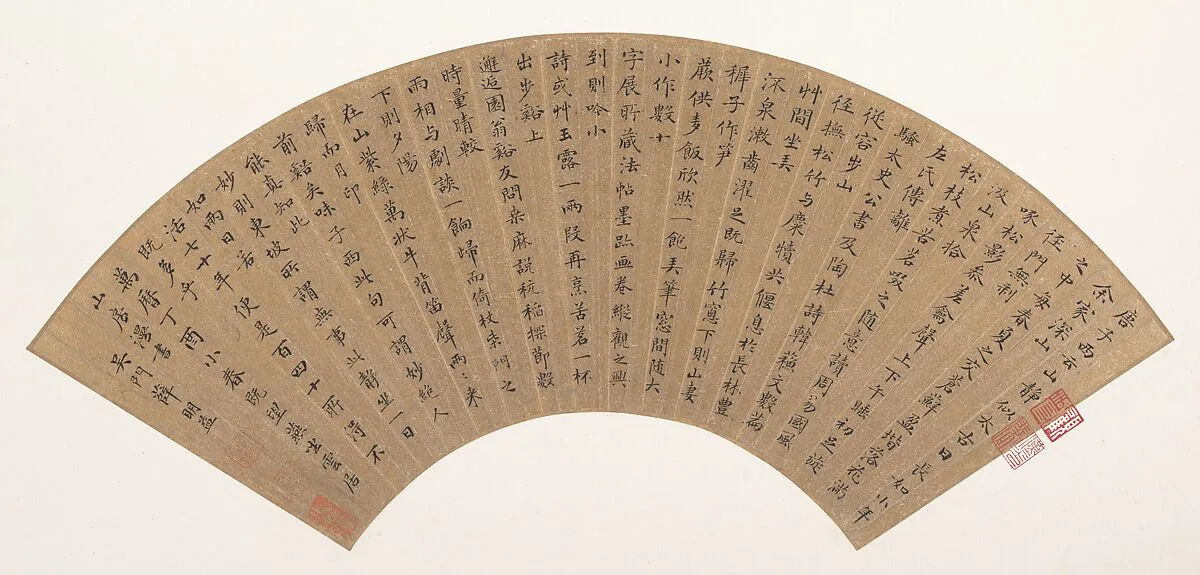 唐子西云山靜似太古日長如小年
余家深山
之中每春夏之交蒼蘚盈堦落花滿
徑門無剝
啄松影參差禽聲上下午睡初足旋
汲山泉拾
松枝煮苦茗啜之隨意讀周易國風
左氏傳離
騷太史公書及陶杜詩韓蘇文數篇
從容步山
徑撫松竹与麋犢共偃息於長林豐
艸間坐弄
流泉漱齒濯足既歸竹窓下則山妻
穉子作笋
蕨供麥飯欣然一飽弄筆窓間随大
小作數十
字展所蔵法帖墨跡画卷縱觀之興
到則吟小
詩或艸玉露一兩段再烹苦茗一杯
出步谿上
邂逅園翁谿友問桑麻說秔稻探節數
時量晴較
雨相与劇談一餉歸而倚杖柴門之
下則夕陽
在山紫綠萬狀牛背笛聲兩〻來
歸而月印
前谿矣味子西此句可謂妙絕人
能真知此
妙則東坡所謂無事此靜坐一日
如兩日若
活七十年便是百四十所得不
既多乎
萬曆丁酉小春既望燕坐雲居
山房漫書
吳門薛明益